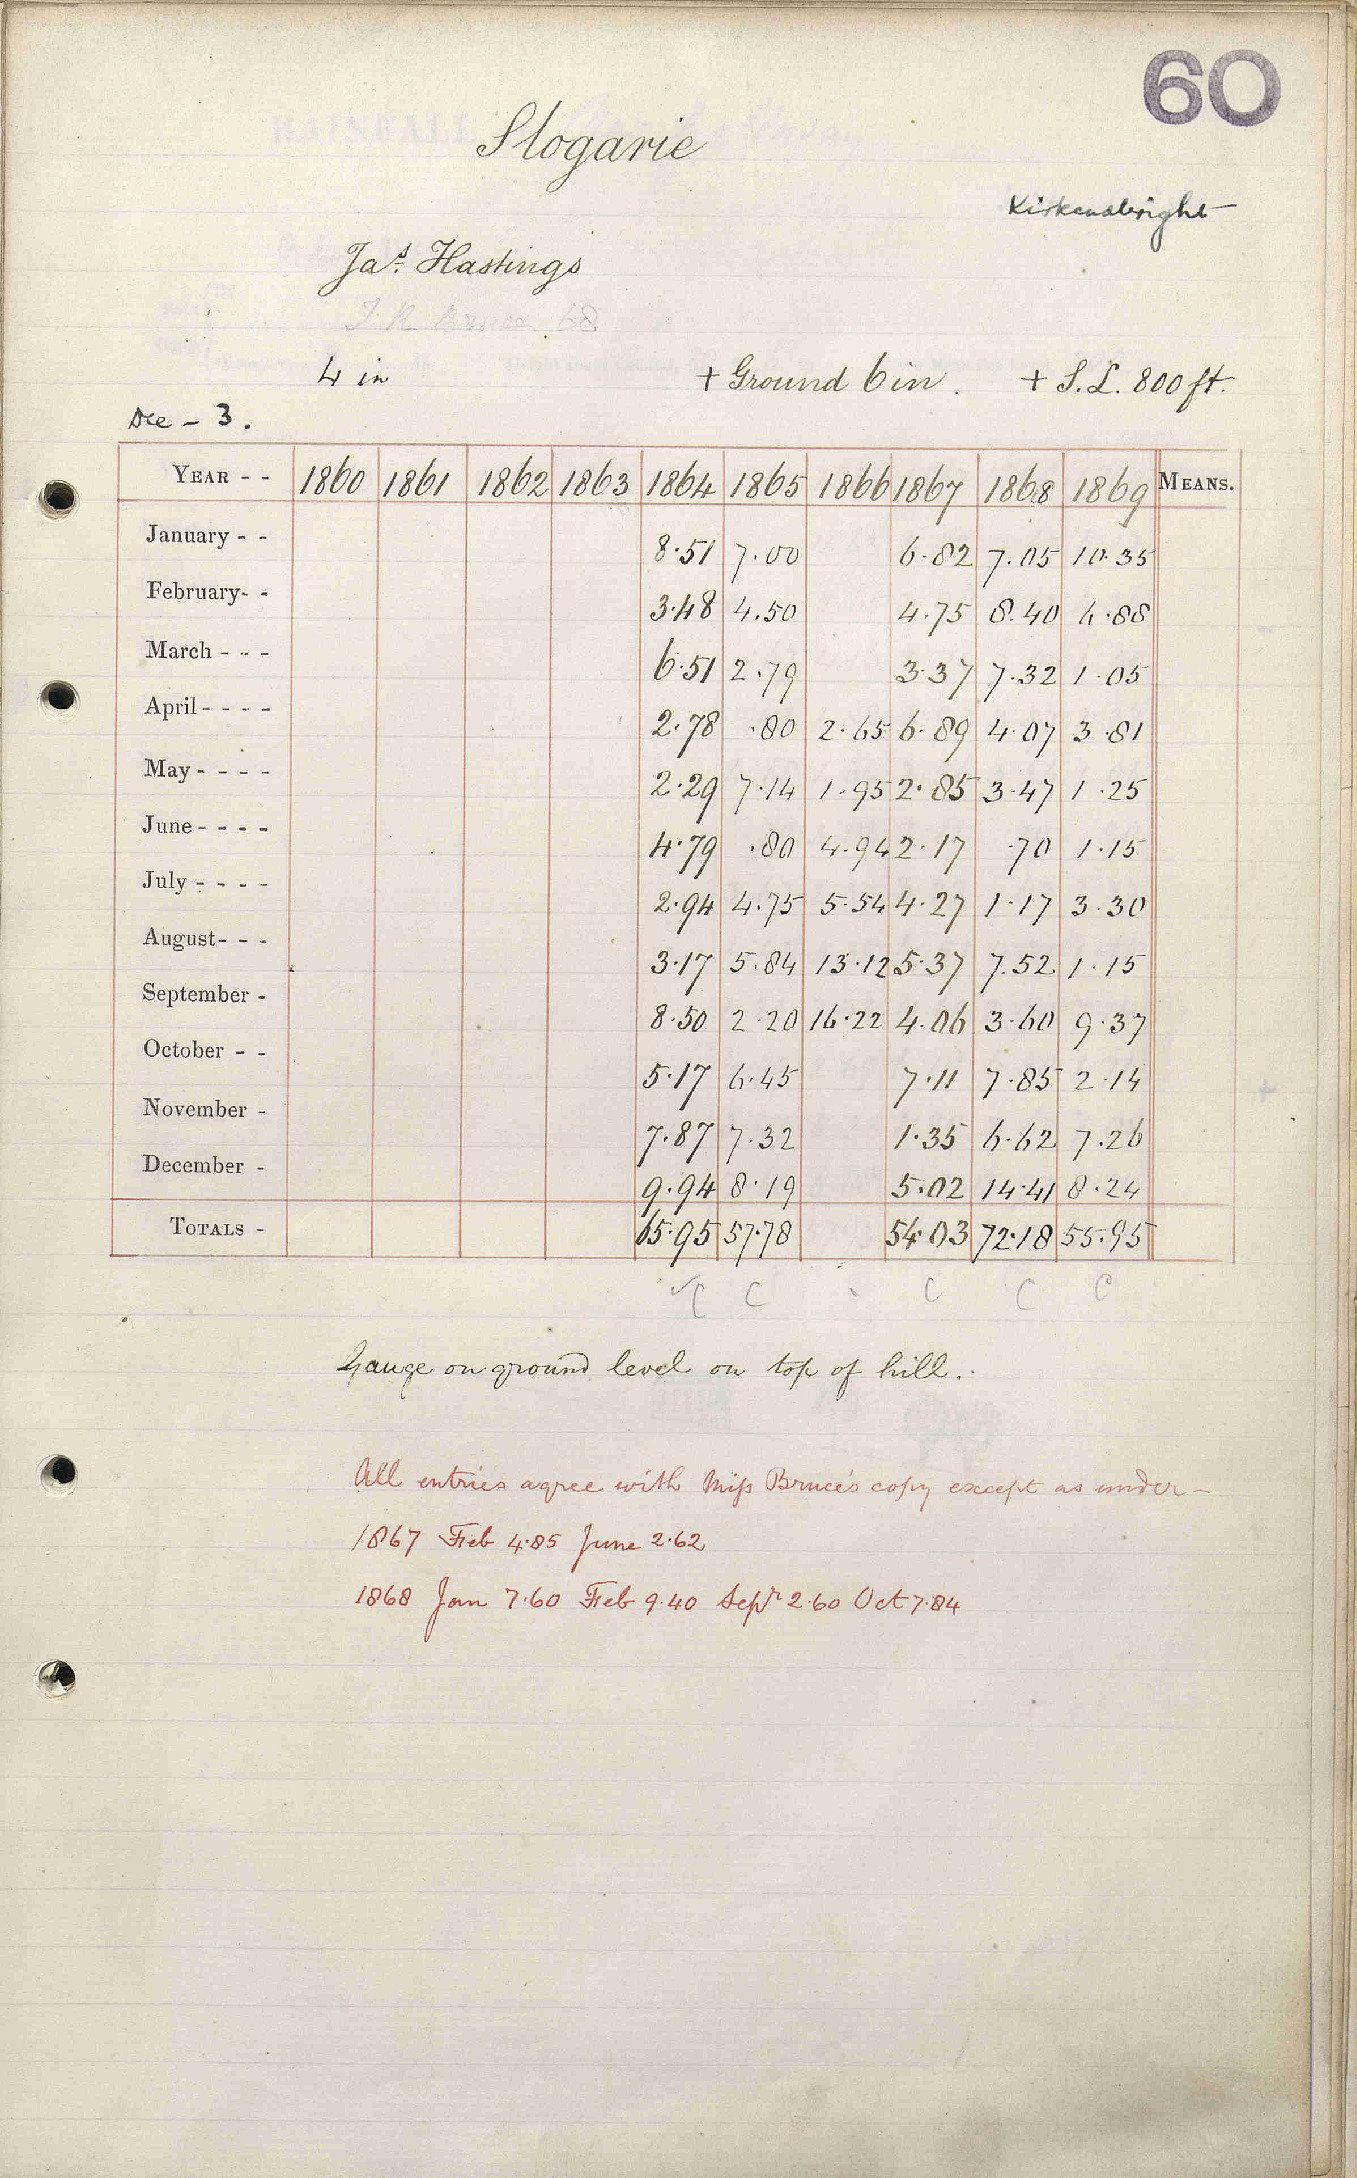 60
Slogarie
Kirkcudbright
Jas. Hastings
4 in + Ground 6 in. + S.L. 800 ft.
Dee - 3.
YEAR - - 1860 1861 1862 1863 1864 1865 1866 1867 1868 1869 MEANS.
January - - 8.51 7.00 6.82 7.05 10.35
February - - 3.48 4.50 4.75 8.40 6.88
March - - - 6.51 2.79 3.37 7.32 1.05
April - - - - 2.78 .80 2.65 6.89 4.07 3.81
May - - - - 2.29 7.14 1.95 2.85 3.47 1.25
June - - - - 4.79 .80 4.94 2.17 .70 1.15
July - - - - 2.94 4.75 5.54 4.27 1.17 3.30
August - - - 3.17 5.84 13.12 5.37 7.52 1.15
September - 8.50 2.20 16.22 4.06 3.60 9.37
October - - 5.17 6.45 7.11 7.85 2.14
November - 7.87 7.32 1.35 6.62 7.26
December - 9.94 8.19 5.02 14.41 8.24
TOTALS - 65.95 57.78 54.03 72.18 55.95
C C C C C
Gauge on ground level on top of hill.
All entries agree with Miss Bruce's copy except as under -
1867 Feb 4.85 June 2.62
1868 Jan 7.60 Feb 9.40 Sepr 2.60 Oct 7.84